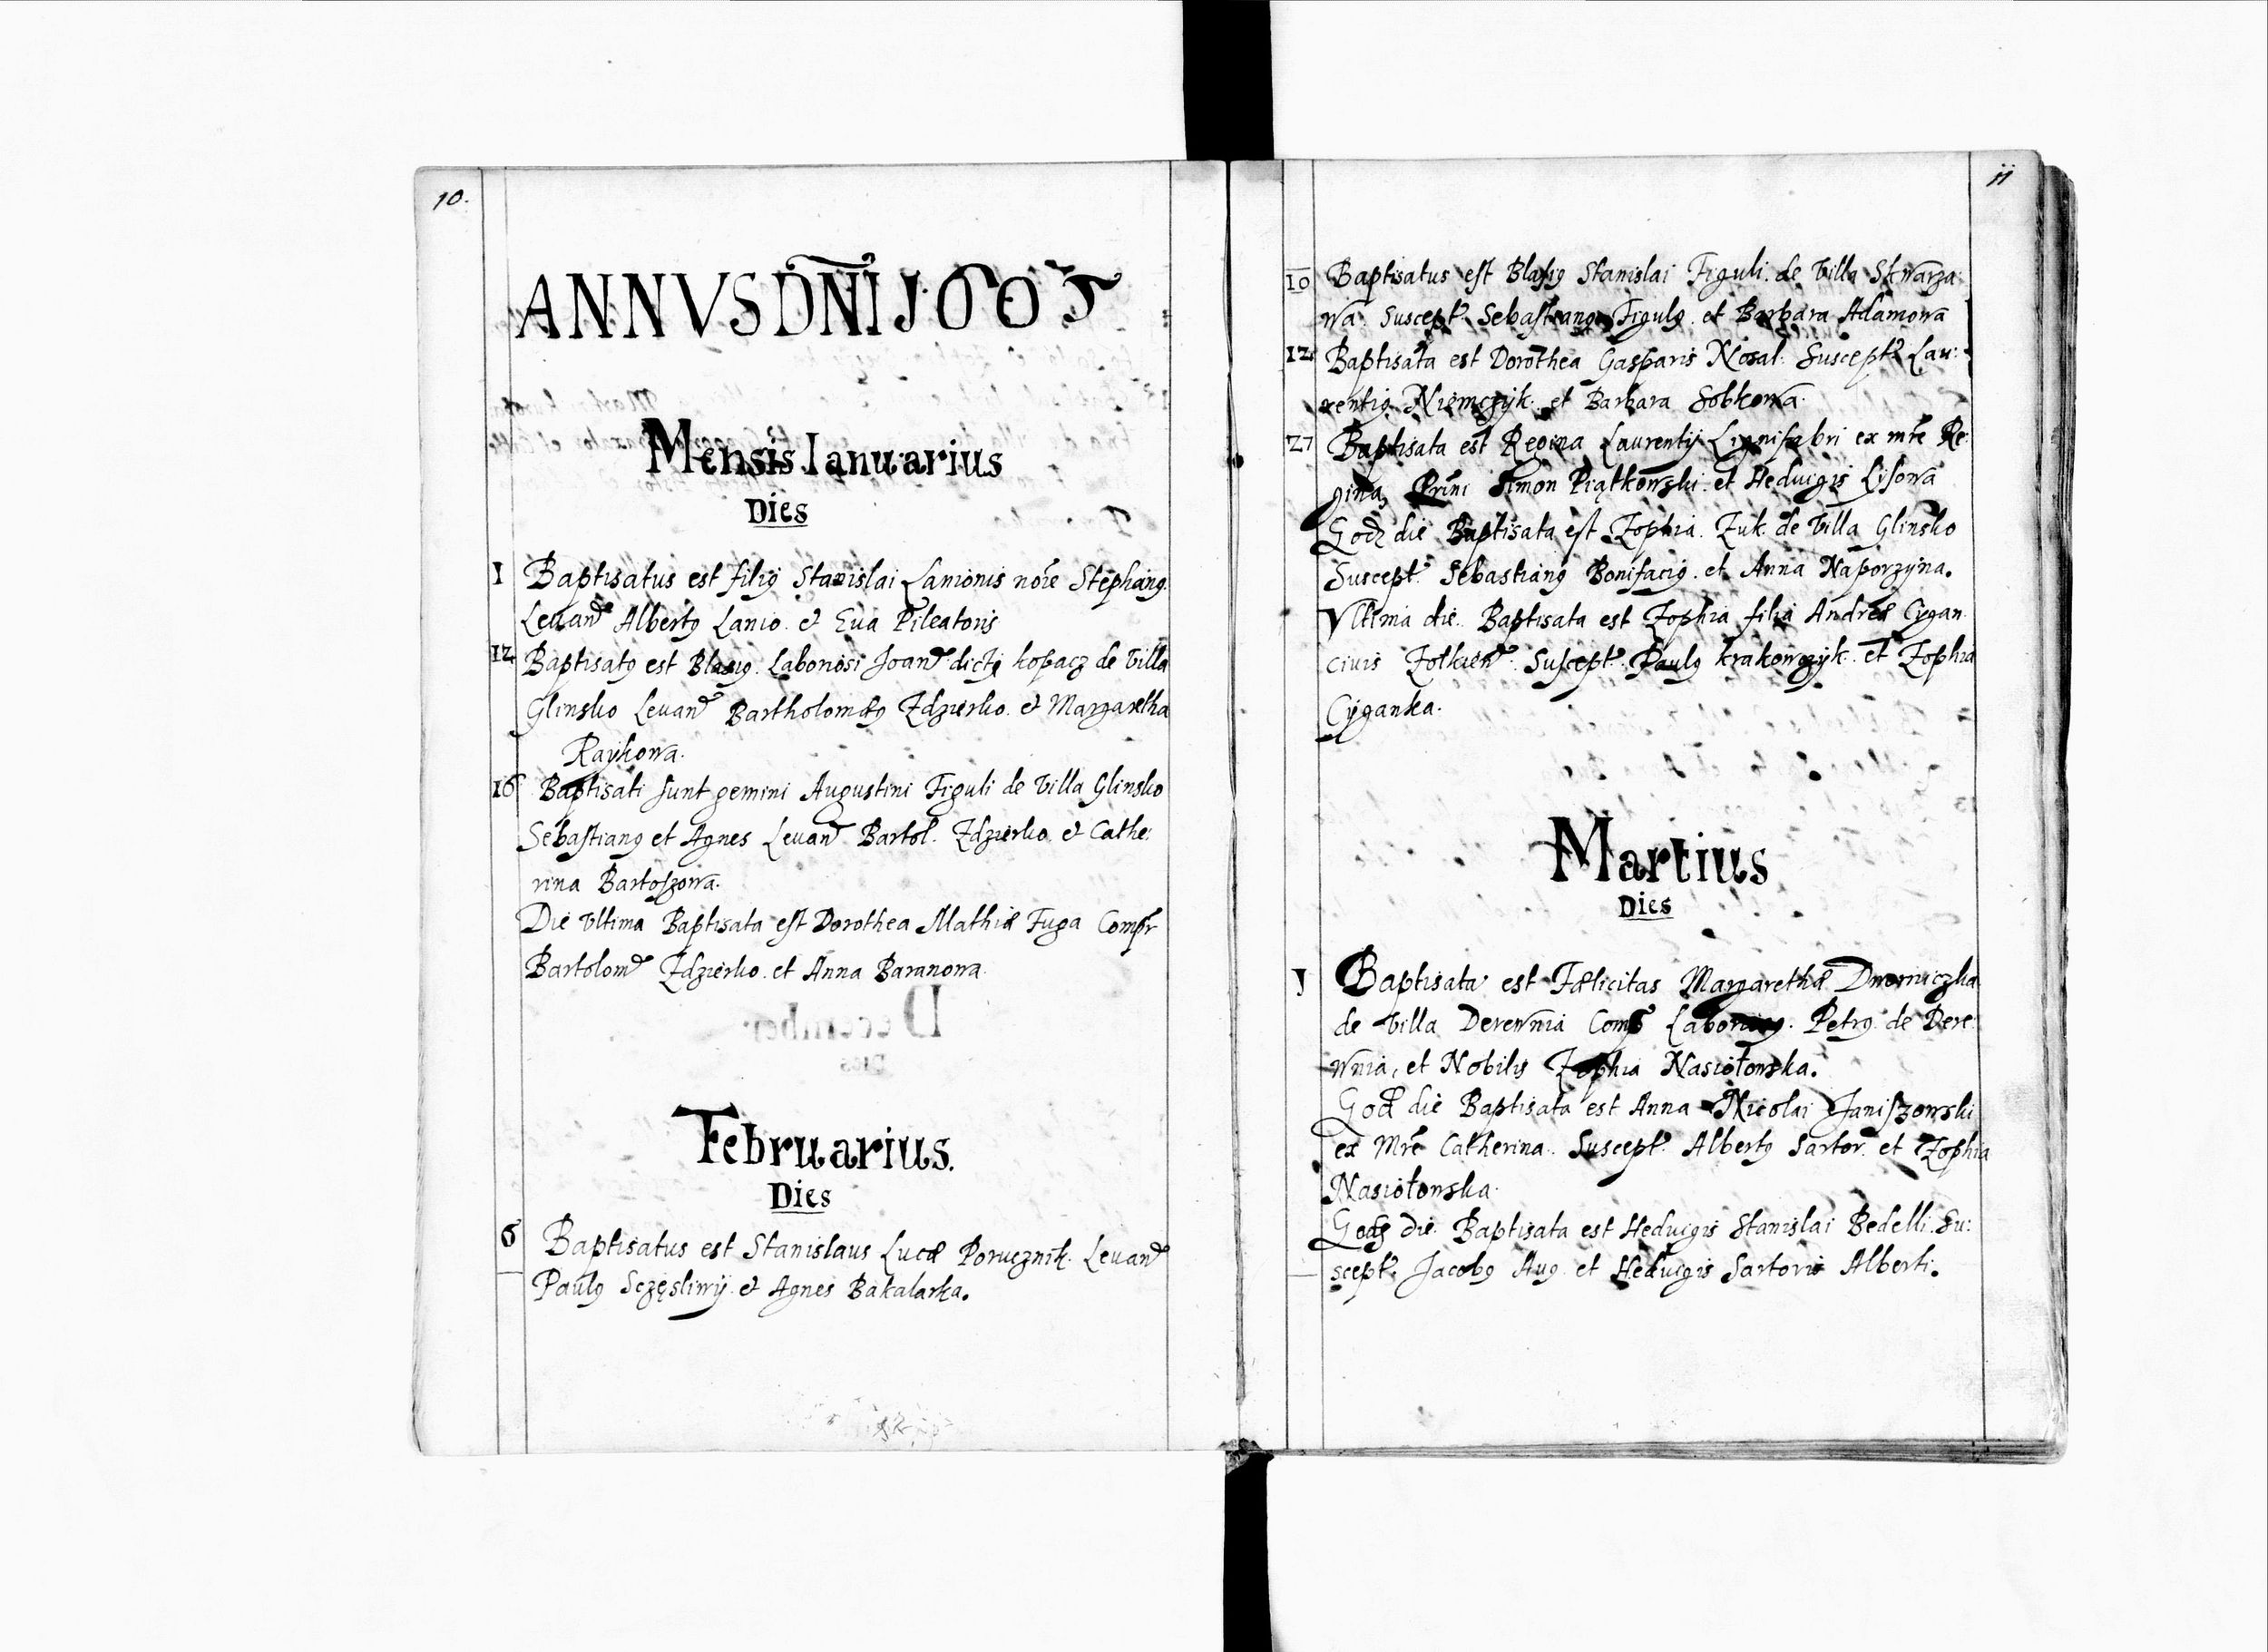 10.
ANNVS DÑI 1605
Mensis Ianuarius
Dies
1 Baptisatus est filiꝰ Stanislai Lanionis nõie Stephanꝰ.
Leuand Albertꝰ Lanio. et Eua Pileatoris
12 Baptisatꝰ est Blasiꝰ. Laboriosi Joan dicti kopacz de Villa
Glinsko Leuand Bartholomæꝰ Zdzierko. et Margaretha
Raykowa.
16 Baptisati sunt gemini Augustini Figuli de Villa Glinsko
Sebastianꝰ et Agnes Leuand Bartol. Zdzierko. et Cathe:
rina Bartoszowa.
Die Vltima Baptisata est Dorothea Mathiæ Fuga Compr
Bartolom Zdzierko. et Anna Baranowa.
Februarius.
Dies
6 Baptisatus est Stanislaus Lucæ Porucznik. Leuand
Paulꝰ Sczęsliwÿ. et Agnes Bakalarka.
11
10 Baptisatus est Blasiꝰ Stanislai Figuli. de Villa Skwarza:
wa. Suscept. Sebastianꝰ Figulꝰ. et Barbara Adamowa
12 Baptisata est Dorothea Gasparis Nosal. Suscept. Lau:
rentiꝰ Niemczÿk. et Barbara Sobkowa.
27 Baptisata est Regina Laurentÿ Lignifabri ex mr̃e Re:
gina, Prñi Simon Piątkowski. et Heduigis Lisowa
Eodem die Baptisata est Zophia. Zuk. de Villa Glinsko
Suscept. Sebastianꝰ Bonifaciꝰ. et Anna Naporzÿna.
Vltima die. Baptisata est Zophia filia Andreæ Cÿgan.
civis Zolkien. Suscept. Paulꝰ krakowczÿk. et Zophia
Cÿganka.
Martius
Dies
1 Baptisata est Fælicitas Margarethæ Dworniczka
de Villa Derewnia Comp Petrꝰ. de Dere:
wnia, et Nobilis Zophia Nasiołowska.
Eod die Baptisata est Anna Nicolai Janiszowski
ex Mr̃e Catherina. Suscept. Albertꝰ Sartor. et Zophia
Nasiołowska.
Eod die. Baptisata est Heduigis Stanislai Bedelli. Su:
scept. Jacobꝰ Aug. et Heduigis Sartoris Alberti.